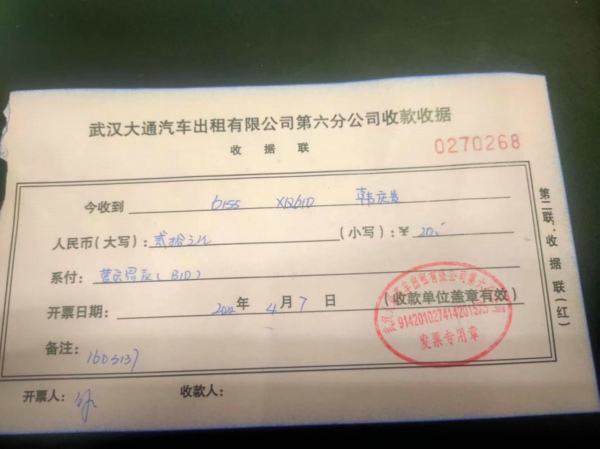 武汉大通汽车出租有限公司第六分公司收款收据
收据联
0270268
今收到 b155 XQb1D
人民币(大写): 贰拾元 (小写): ¥ 20.
系付:
开票日期: 年 4 月 7 日 (收款单位盖章有效)
备注: 1603137
开票人: 收款人:
第二联:收据联(红)
发票专用章